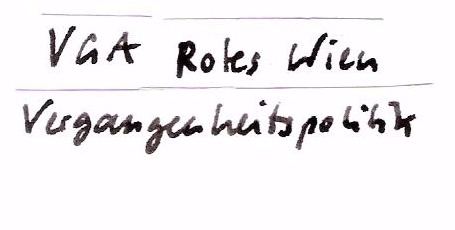 VGA Rotes Wien
Vergangenheitspolitik